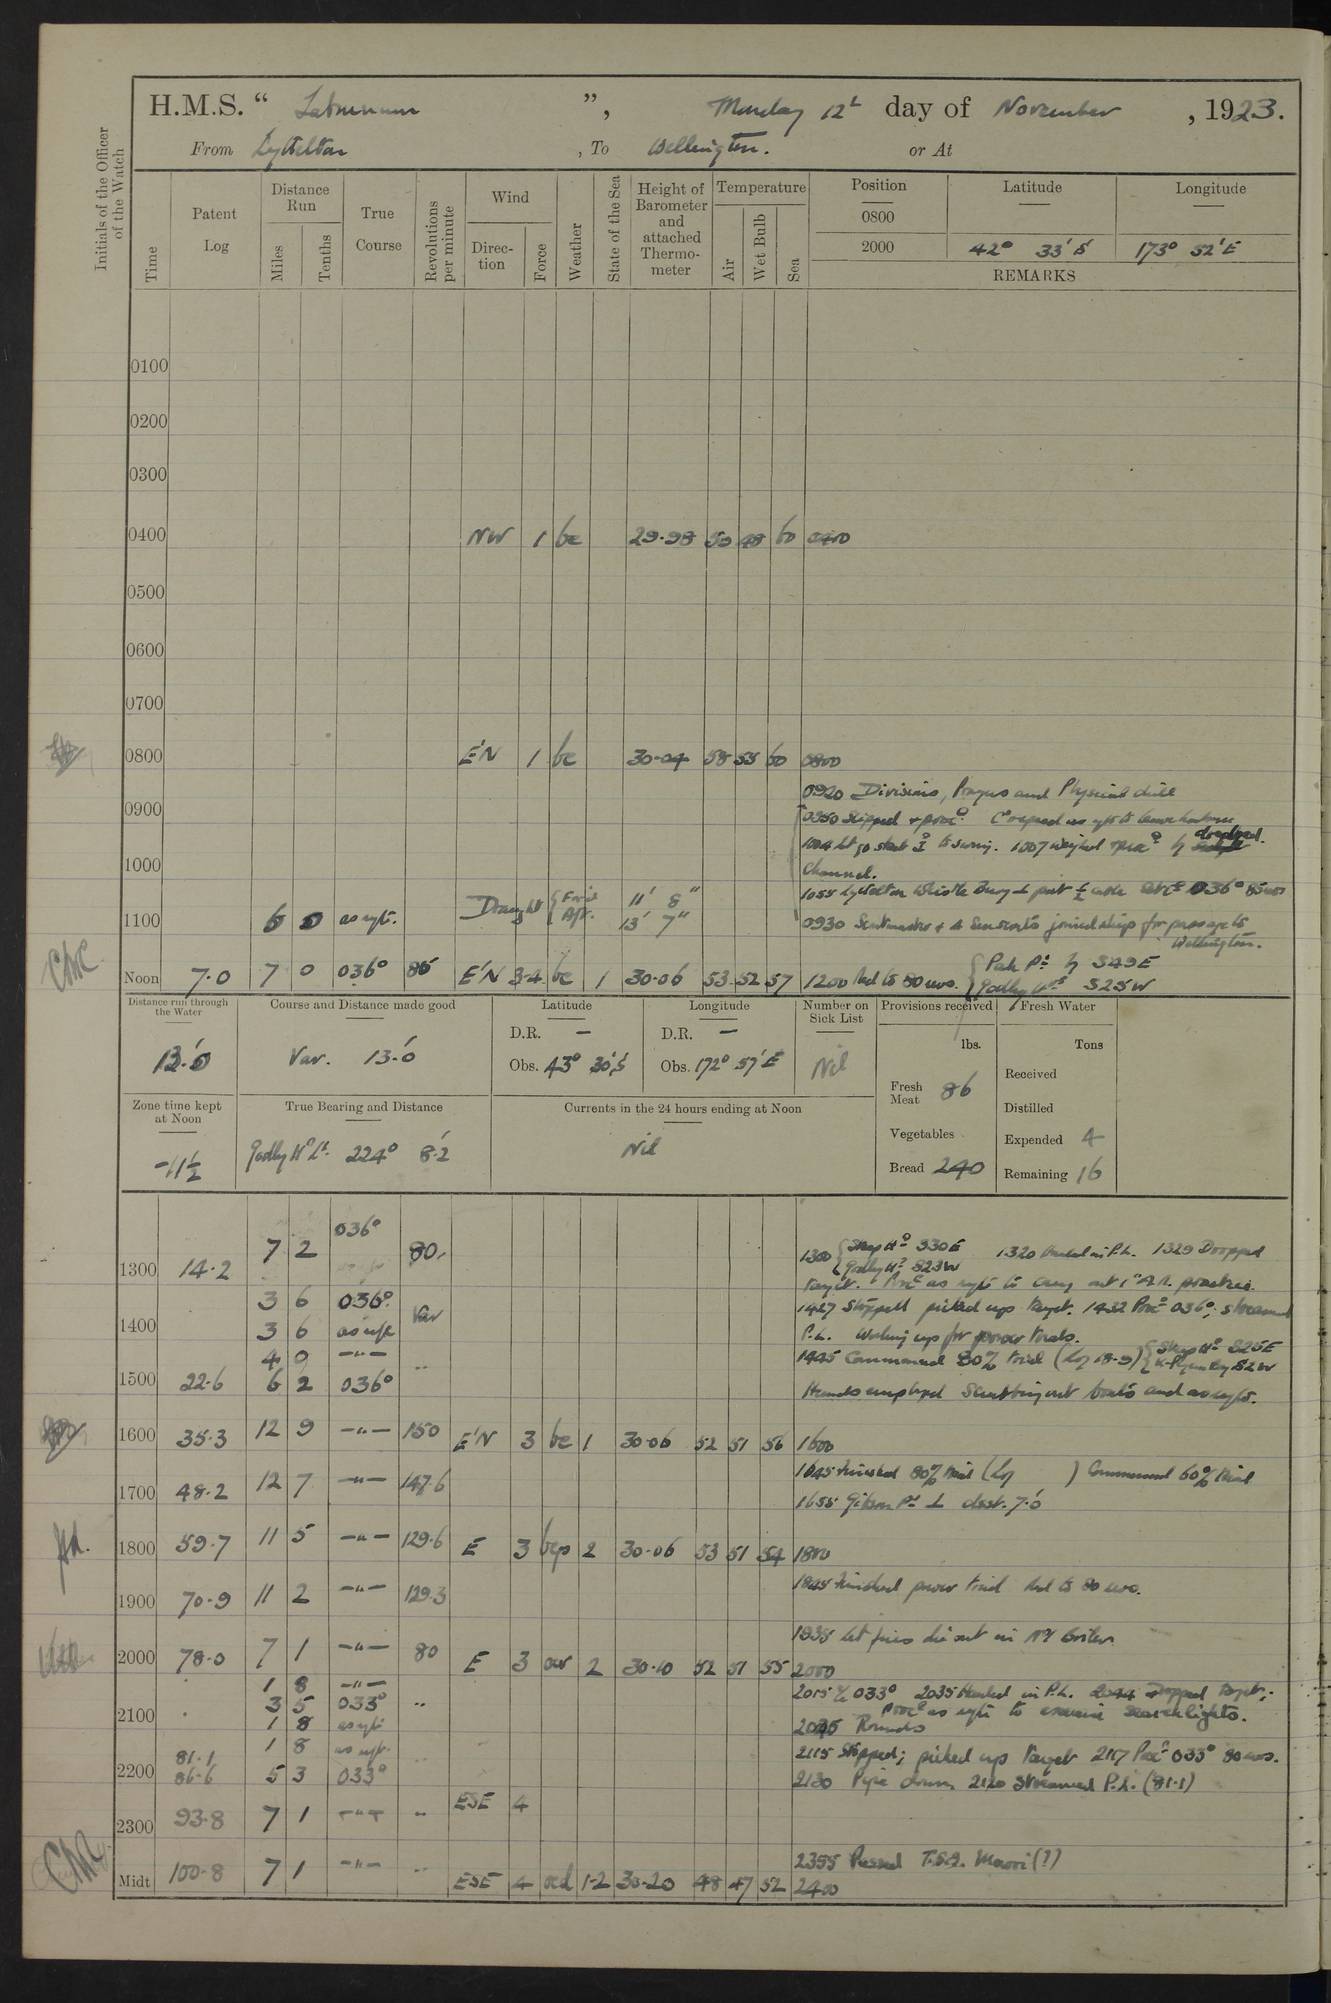 H.M.S. “ Laburnum ”, Monday 12th day of November, 1923.
From Lyttelton, To Wellington. or At
Initials of the Officer of the Watch
Time
Patent Log
Distance Run
Miles
Tenths
True Course
Revolutions per minute
Wind
Direction
Force
Weather
State of the Sea
Height of Barometer and attached Thermometer
Temperature
Air
Wet Bulb
Sea
Position Latitude Longitude
0800
2000 42° 33' S 173° 52' E
REMARKS
0100
0200
0300
0400 NW 1 bc 29.98 50 48 60 0400
0500
0600
0700
0800 E'N 1 bc 30.04 58 55 60 0800
0920 Divisions, Prayers and Physical drill
0900 0950 Slipped & procd. Co & speed as reqte to leave harbour
1004 let go stbd to swing. 1007 weighed & proc by dredged
1000 Channel.
1055 Lyttelton Whistle Buoy port ½ cable 036° 85 revs
Draught Ford 11' 8"
Aft. 13' 7"
1100 6 0 as reqte. 0930 Scoutmaster & 4 Sea scouts joined ship for passage to
Wellington.
Noon 7.0 7 0 036° 85 E'N 3-4 bc 1 30.06 53 52 57 1200 Red to 80 revs. S49E
Godley Hd S25W
Distance run through the Water
13.'0
Course and Distance made good
Var. 13.'0
Latitude
D.R. —
Obs. 43° 30' S
Longitude
D.R. —
Obs. 172° 57' E
Number on Sick List
Nil
Provisions received
lbs.
Fresh Meat 86
Vegetables
Bread 240
Fresh Water
Tons
Received
Distilled
Expended 4
Remaining 16
Zone time kept at Noon
-11½
True Bearing and Distance
Godley Hd Lt. 224° 8.'2
Currents in the 24 hours ending at Noon
Nil
036°
1300 14.2 7 2 80. 1300 S30E 1320 Hauled in P.L. 1329 Dropped
Godley Hd S23W
target. Procd as reqte to carry out 1" A.R. practice.
3 6 036°. Var 1427 Stopped picked up target. 1432 Procd 036°; streamed
1400 3 6 as reqte P.L. Working up for power trials.
4 0 —"— " 1445 Commenced 80% trial (Log 18.9) S25E
S2W
1500 22.6 6 2 036° Hands employed Scrubbing out boats and as reqte.
1600 35.3 12 9 —"— 150 E'N 3 bc 1 30.06 52 51 56 1600
1700 48.2 12 7 —"— 147.6 1645 Finished 80% trial (Log ) Commenced 60% trial
1655 Gibson Pt dist. 7.'0
1800 59.7 11 5 —"— 129.6 E 3 bcp 2 30.06 53 51 54 1800
1900 70.9 11 2 —"— 129.3 1845 Finished power trial Red to 80 revs.
1935 Let fires die out in No 1 Boiler
2000 78.0 7 1 —"— 80 E 3 2 30.10 52 51 55 2000
1 8 —"— 2015 a/c 033° 2035 Hauled in P.L. 2044 Dropped target;
3 5 033° " Procd as reqte to exercise searchlights.
2100 1 8 as reqte 2045 Rounds
81.1 1 8 as reqte. " 2115 Stopped; picked up target 2117 Procd 033° 80 revs.
2200 86.6 5 3 033° 2130 Pipe down 2120 Streamed P.L. (81.1)
ESE 4
2300 93.8 7 1 —"— "
2355 Passed T.S.S. Maori (?)
Midt 100.8 7 1 —"— " ESE 4 ocd 1-2 30.20 48 47 52 2400